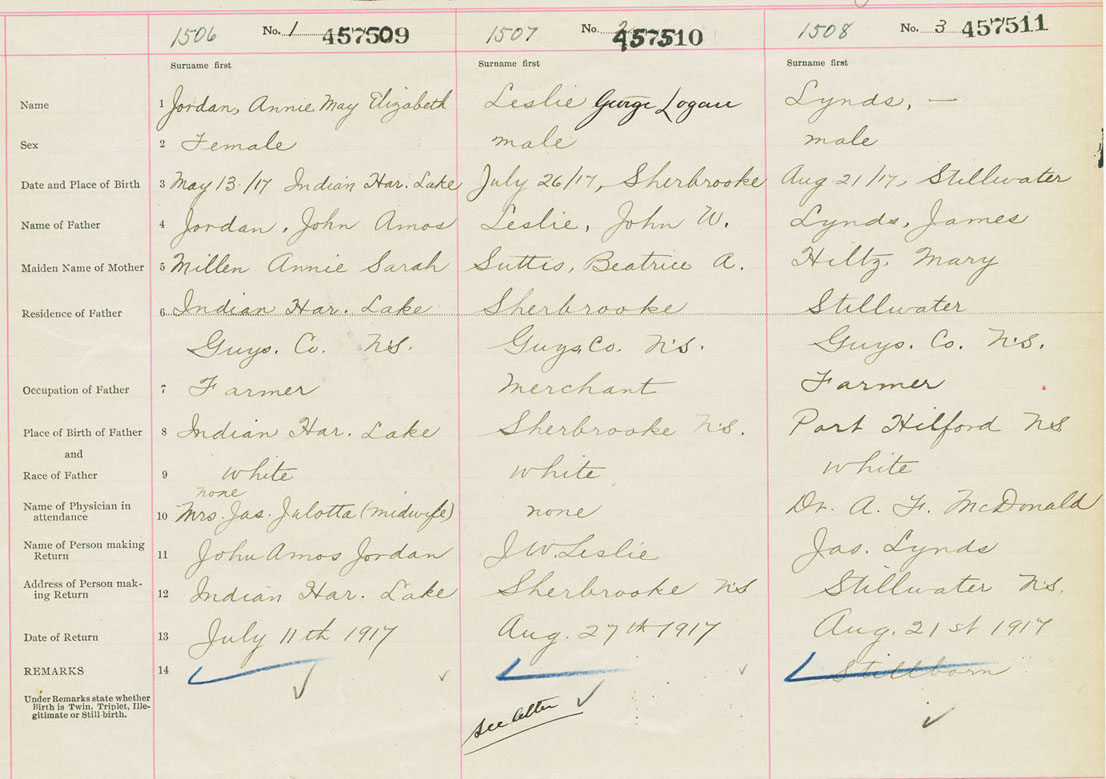 1506 No. 1 457509 1507 No. 2 457510 1508 No. 3 457511
Surname first Surname first Surname first
Name 1 Jordan, Annie May Elizabeth Leslie George Logan Lynds, —
Sex 2 Female male male
Date and Place of Birth 3 May 13/17 Indian Har. Lake July 26/17, Sherbrooke Aug 21/17, Stillwater
Name of Father 4 Jordan, John Amos Leslie, John W. Lynds, James
Maiden Name of Mother 5 Millen Annie Sarah Suttis, Beatrice A. Hiltz, Mary
Residence of Father 6 Indian Har. Lake Sherbrooke Stillwater
Guys. Co. N.S. Guys. Co. N.S. Guys. Co. N.S.
Occupation of Father 7 Farmer Merchant Farmer
Place of Birth of Father 8 Indian Har. Lake Sherbrooke N.S. Port Hilford N.S
and
Race of Father 9 White White White
none
Name of Physician in attendance 10 Mrs. Jas. Julotta (midwife) none Dr. A. F. McDonald
Name of Person making Return 11 John Amos Jordan J W. Leslie Jas. Lynds
Address of Person mak-
ing Return 12 Indian Har. Lake Sherbrooke N.S Stillwater N.S.
Date of Return 13 July 11th 1917 Aug. 27th 1917 Aug. 21st 1917
REMARKS 14 Stillborn
Under Remarks state whether
Birth is Twin, Triplet, Ille-
gitimate or Still-birth.
See letter